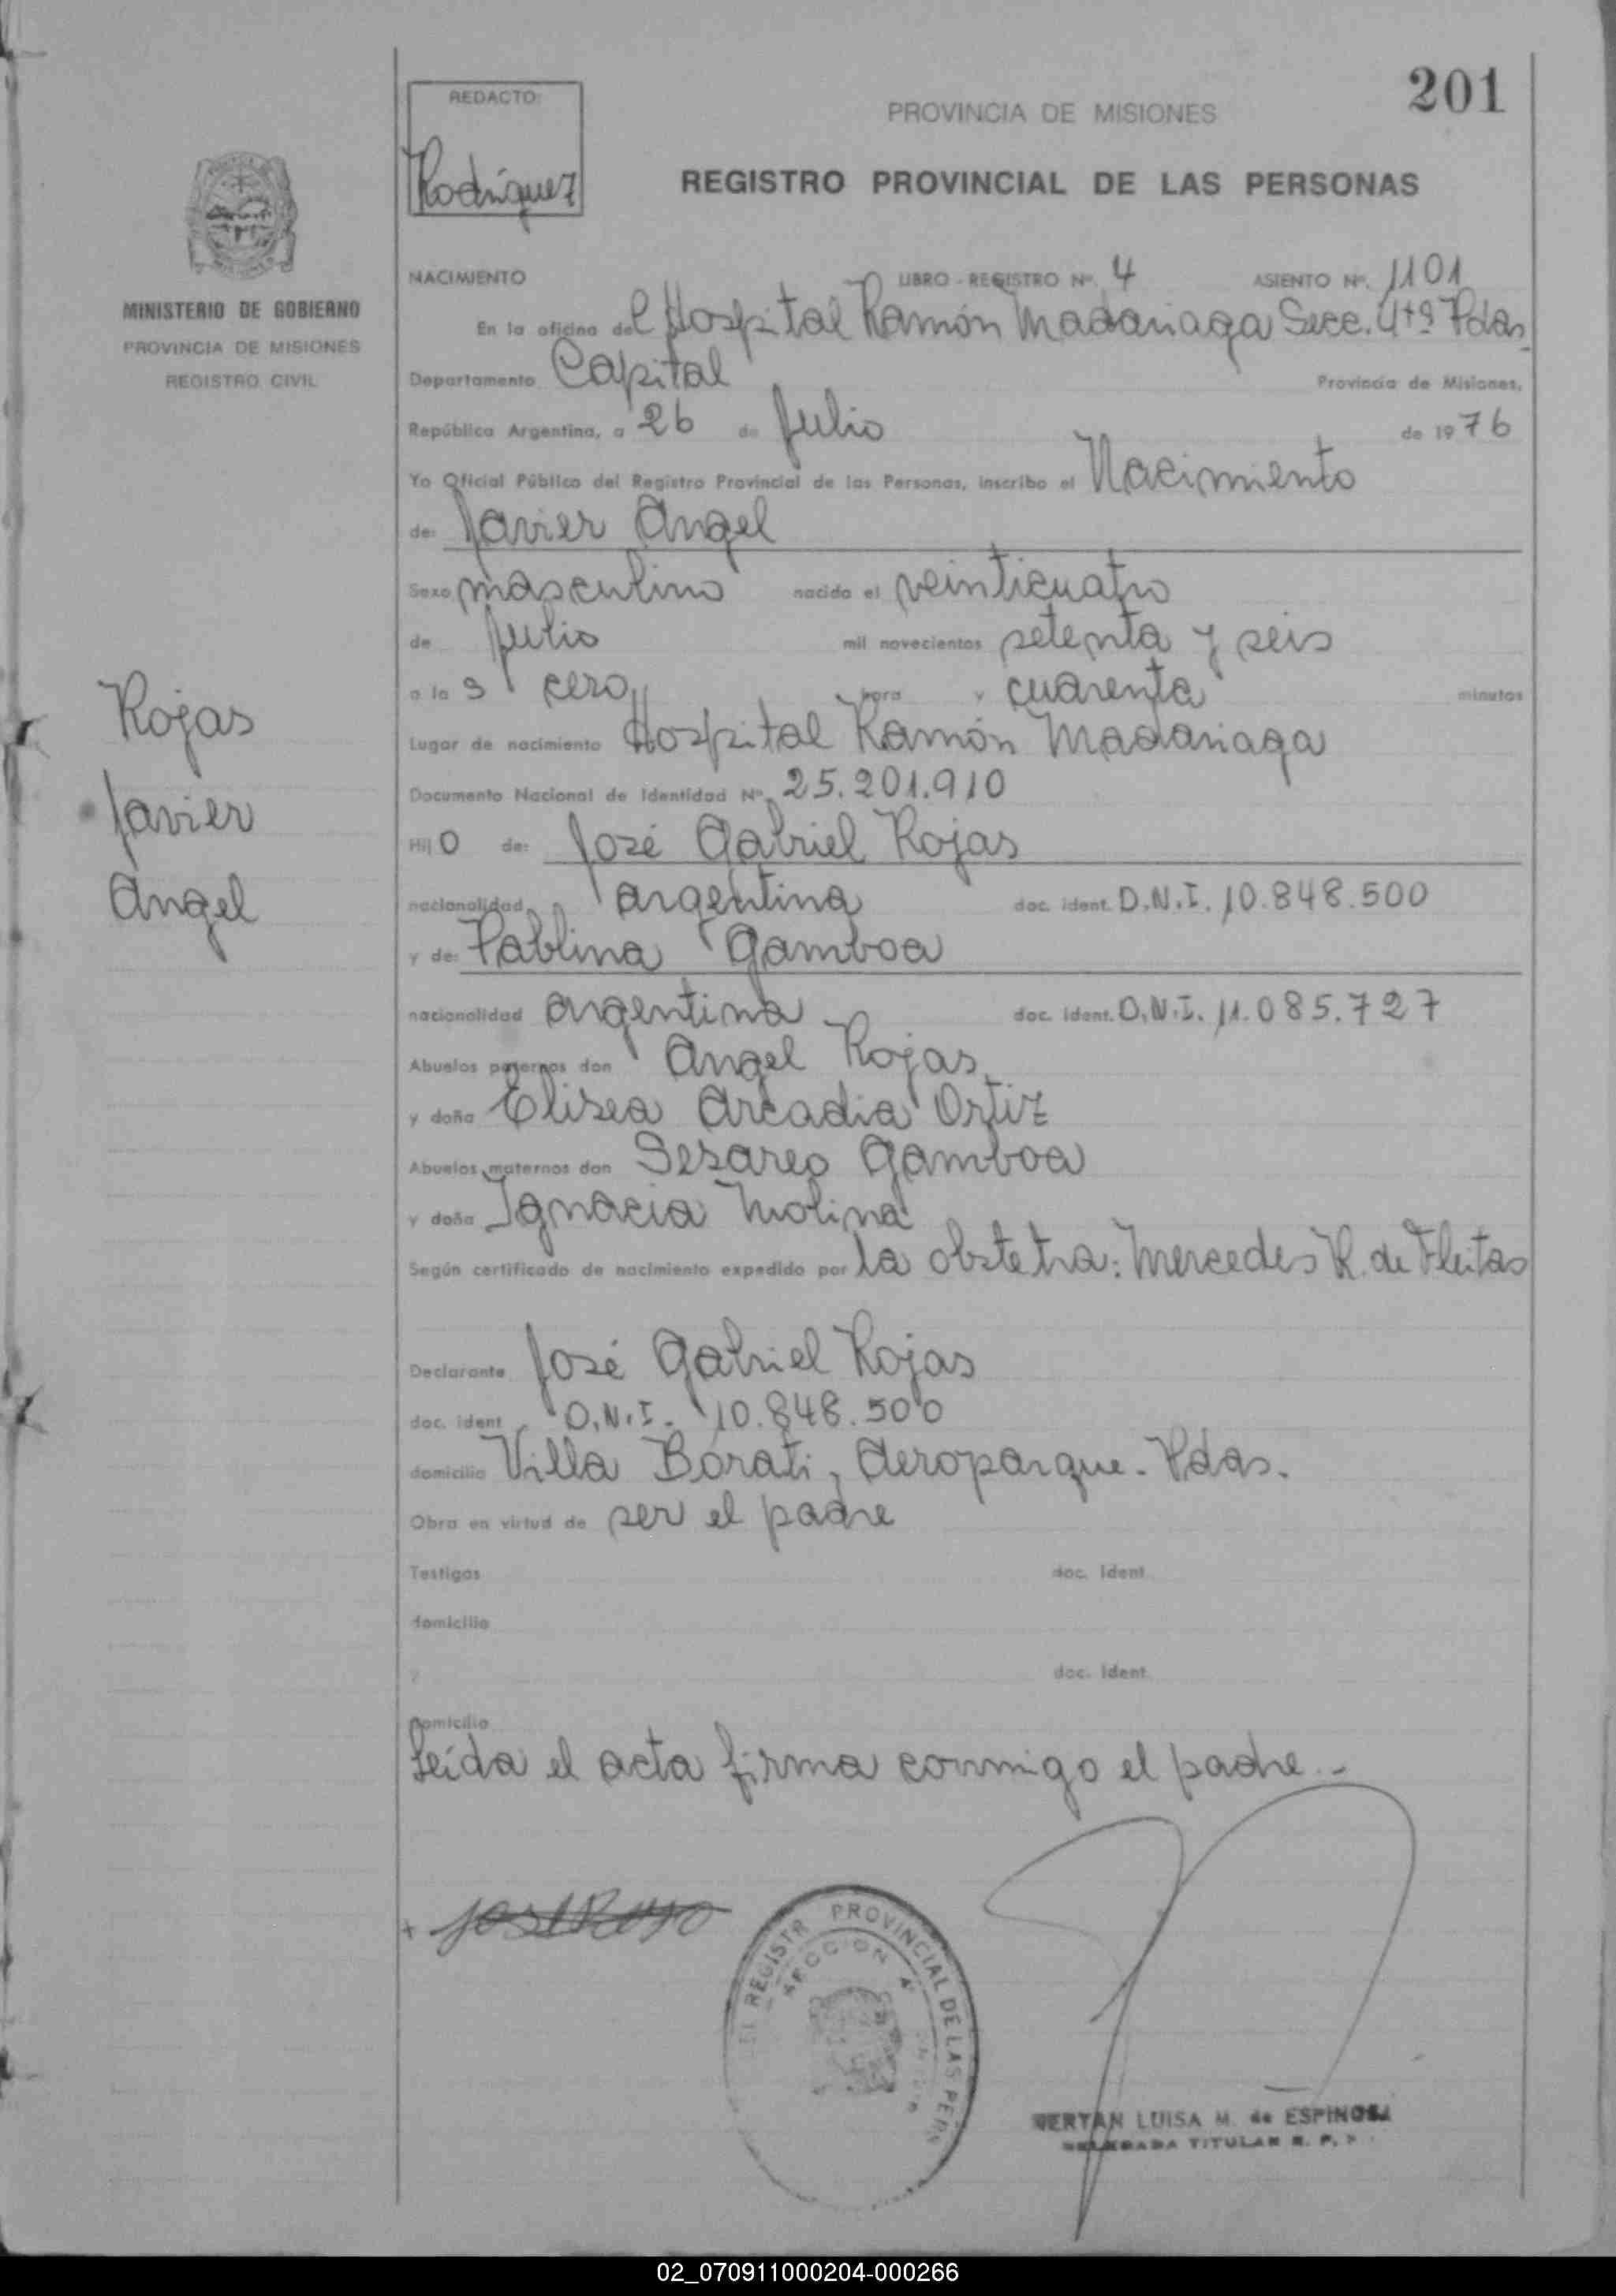 201
REDACTO:
Rodríguez
PROVINCIA DE MISIONES
REGISTRO PROVINCIAL DE LAS PERSONAS
MINISTERIO DE GOBIERNO
PROVINCIA DE MISIONES
REGISTRO CIVIL
NACIMIENTO LIBRO - REGISTRO Nº. 4 ASIENTO Nº. 1101
En la oficina del Hospital Ramón Madariaga Secc. 4tª Pdas.
Departamento Capital Provincia de Misiones,
República Argentina, a 26 de Julio de 1976
Yo Oficial Público del Registro Provincial de las Personas, inscribo el Nacimiento
de: Javier Angel
Sexo masculino nacido el veinticuatro
de Julio mil novecientos setenta y seis
a las cero hora y cuarenta minutos
Lugar de nacimiento Hospital Ramón Madariaga
Documento Nacional de Identidad Nº. 25.201.910
Hijo de: José Gabriel Rojas
nacionalidad argentina doc. ident. D.N.I. 10.848.500
y de: Pablina Gamboa
nacionalidad argentina doc. ident. D.N.I. 11.085.727
Abuelos paternos don Angel Rojas
y doña Elisea Arcadia Ortiz
Abuelos maternos don Sesareo Gamboa
y doña Ignacia Molina
Según certificado de nacimiento expedido por la obstetra: Mercedes R. de Fleitas
Declarante José Gabriel Rojas
doc. ident. D.N.I. 10.848.500
domicilio Villa Borati, Aeroparque. Pdas.
Obra en virtud de ser el padre
Testigos doc. ident.
domicilio
y doc. ident.
domicilio
Leída el acta firma conmigo el padre.-
Rojas
Javier
Angel
REGISTR PROVINCIAL DE LAS PERS
SECCION 4ª
LUISA M. de ESPINOSA
TITULAR R. P.
02_070911000204-000266